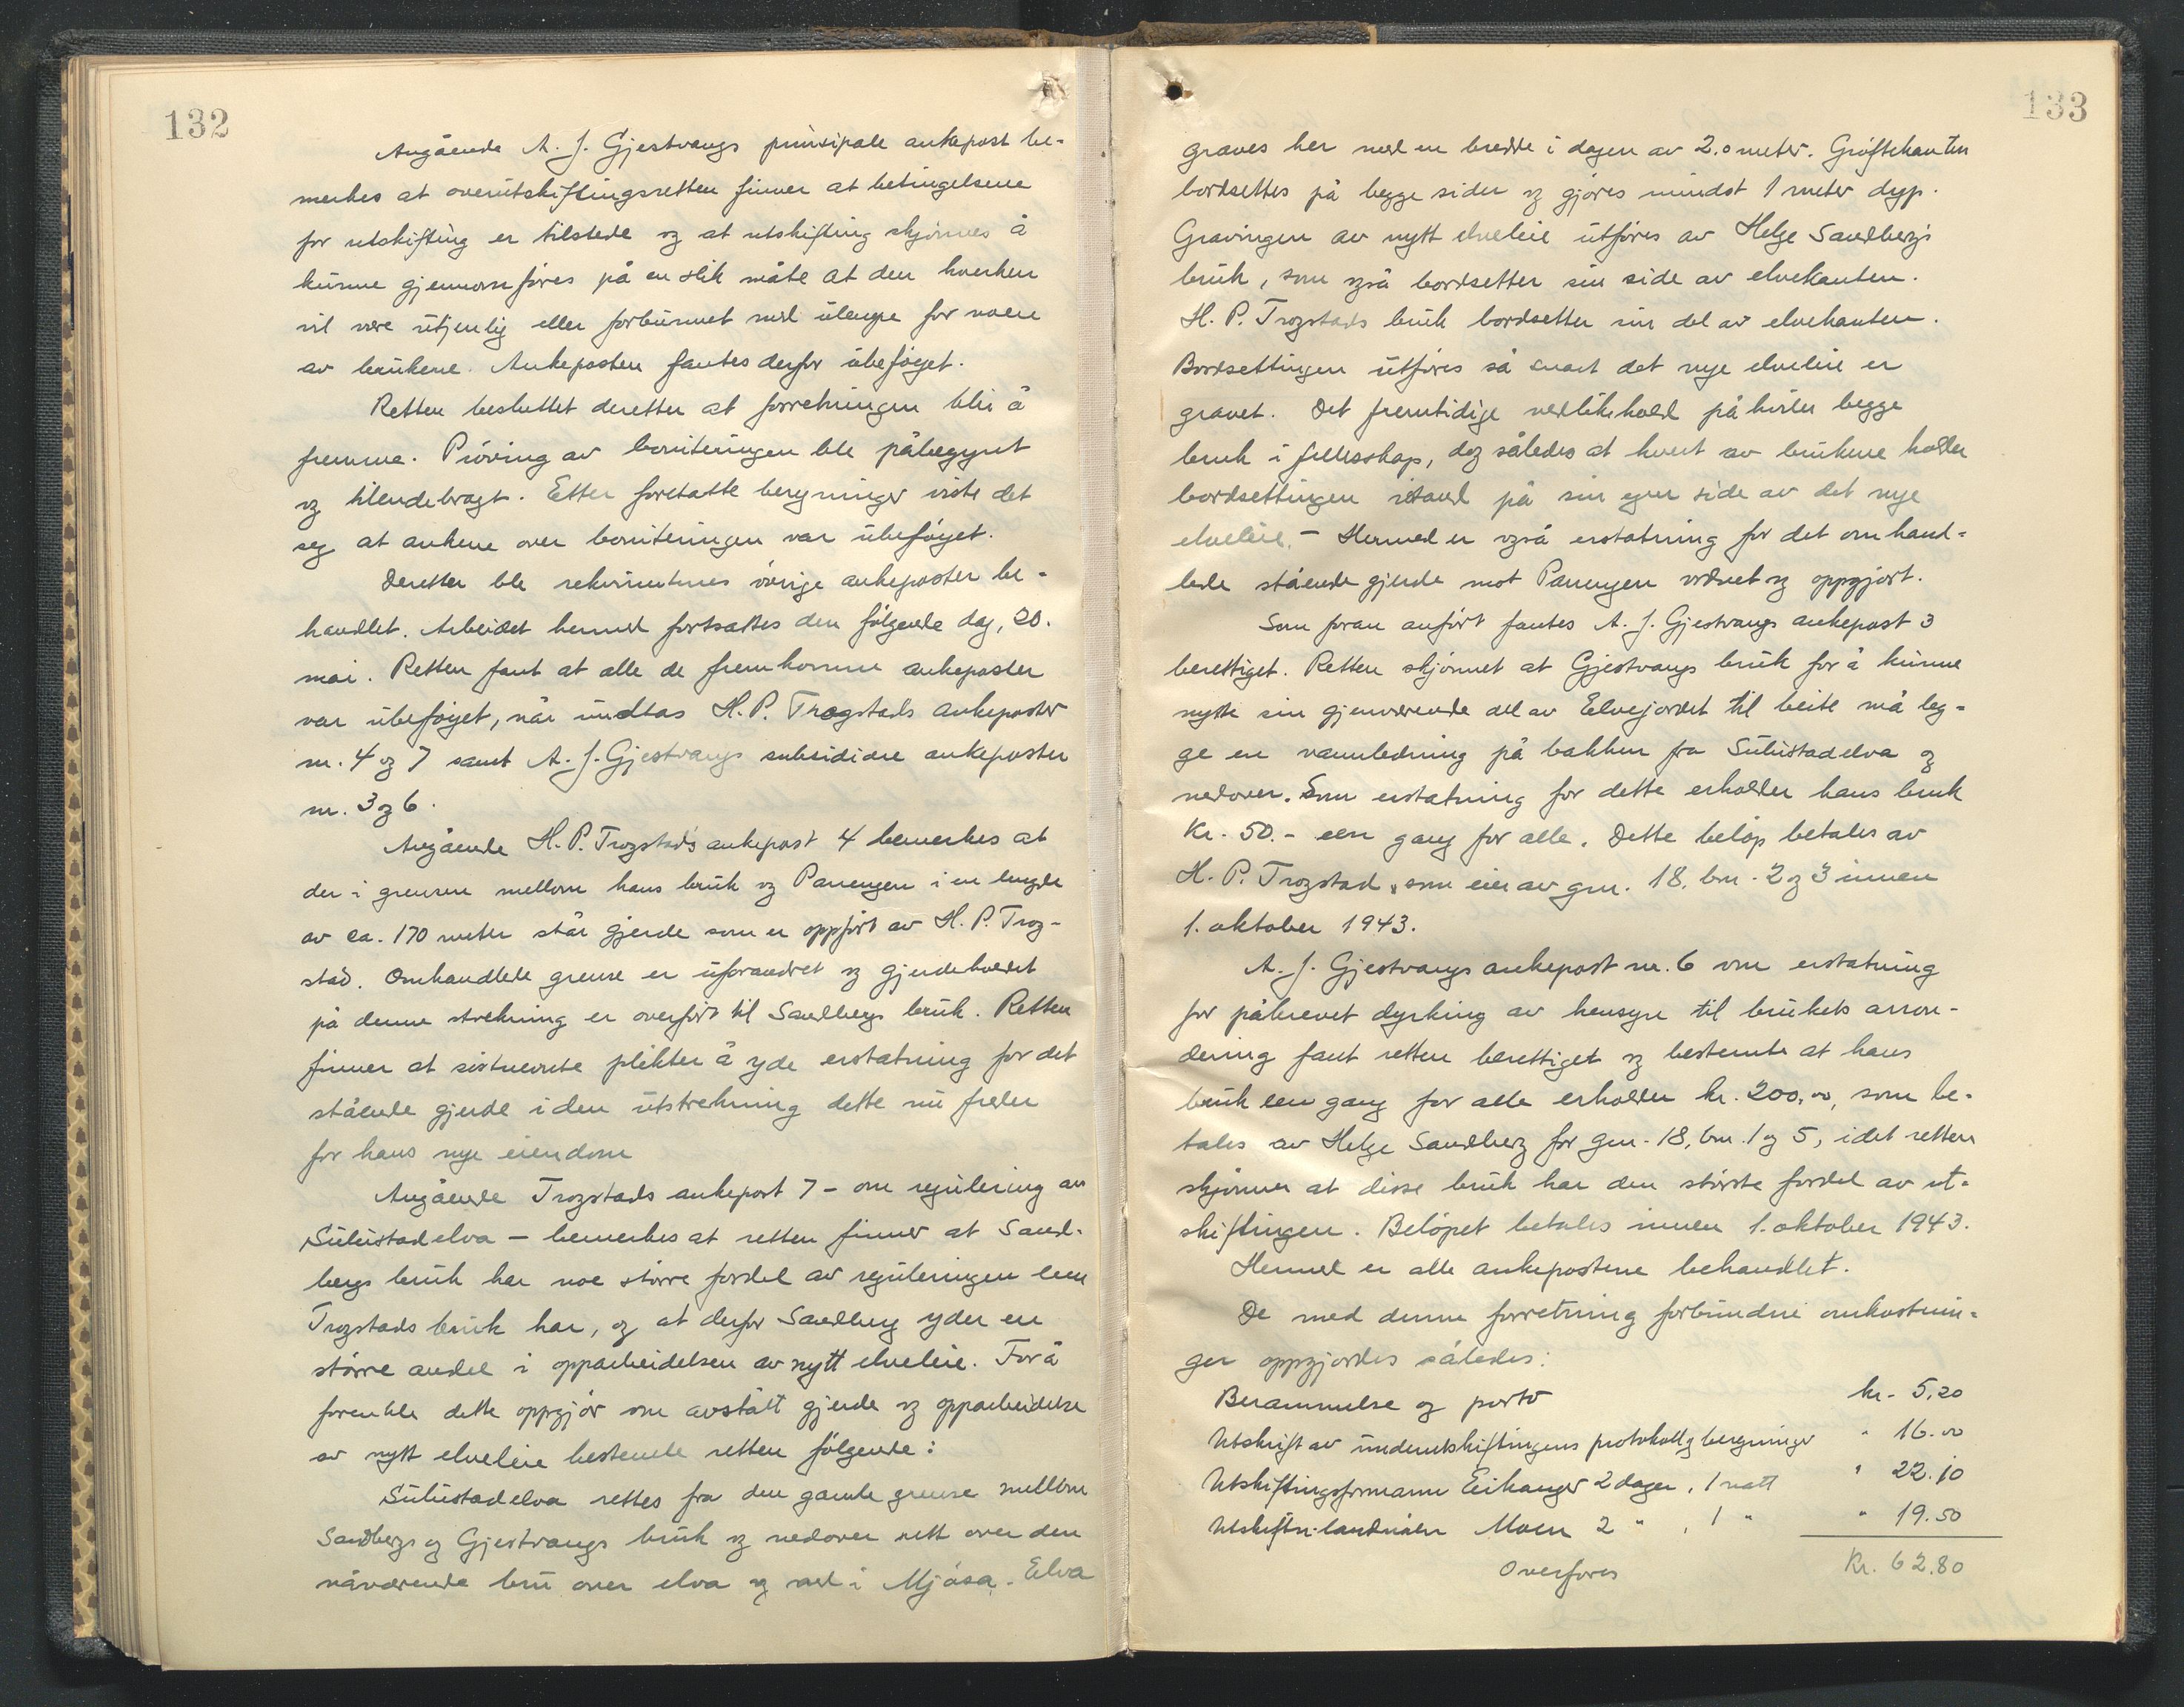 132
Angående A. J. Gjestvangs prinsipale ankepost be-
merkes at overutskiftingsretten finner at betingelsene
for utskifting er tilstede og at utskifting skjønnes å
kunne gjennomføres på en slik måte at den hverken
vil være utjenlig eller forbunnet med ulempe for noen
av brukene. Ankeposten fantes derfor ubeføyet.
Retten besluttet deretter at forretningen blir å
fremme. Prøving av boniteringen ble påbegynt
og tilendebragt. Etter foretatte beregninger viste det
seg at ankene over boniteringen var ubeføyet.
Deretter ble rekvirentenes øvrige ankeposter be-
handlet. Arbeidet hermed fortsattes den følgende dag, 20.
mai. Retten fant at alle de fremkomne ankeposter
var ubeføyet, når undtas H. P. Trogstads ankeposter
nr. 4 og 7 samt A. J. Gjestvangs subsidiære ankeposter
nr. 3 og 6.
Angående H. P. Trogstads ankepost 4 bemerkes at
der i grensen mellom hans bruk og Parengen i en lengde
av ca. 170 meter står gjerde som er oppført av H. P. Trog-
stad. Omhandlede grense er uforandret og gjerdeholdet
på denne strekning er overført til Sandbergs bruk. Retten
finner at sistnevnte plikter å yde erstatning for det
stående gjerde i den utstrekning dette nu freder
for hans nye eiendom
Angående Trogstads ankepost 7 - om regulering av
Sulustadelva - bemerkes at retten finner at Sand-
bergs bruk har noe større fordel av reguleringen enn
Trogstads bruk har, og at derfor Sandberg yder en
større andel i opparbeidelsen av nytt elveleie. For å
forenkle dette oppgjør om avstått gjerde og opparbeidelse
av nytt elveleie bestemte retten følgende:
Sulustadelva rettes fra den gamle grense mellom
Sandbergs og Gjestvangs bruk og nedover rett over den
nåværende bru over elva og ned i Mjøsa. Elva
133
graves her med en bredde i dagen av 2.0 meter. Grøftekanten
bordsettes på begge sider og gjøres mindst 1 meter dyp.
Gravingen av nytt elveleie utføres av Helge Sandbergs
bruk, som også bordsetter sin side av elvekanten.
H. P. Trogstads bruk bordsetter sin del av elvekanten.
Bordsettingen utføres så snart det nye elveleie er
gravet. Det fremtidige vedlikehold påhviler begge
bruk i fellesskap, dog således at hvert av brukene holder
bordsettingen istand på sin egen side av det nye
elveleie. - Hermed er også erstatning for det omhand-
lede stående gjerde mot Parengen ordnet og oppgjort.
Som foran anført fantes A. J. Gjestvangs ankepost 3
berettiget. Retten skjønnet at Gjestvangs bruk for å kunne
nytte sin gjenværende del av Elvejordet til beite må leg-
ge en vannledning på bakken fra Sulustadelva og
nedover. Som erstatning for dette erholder hans bruk
Kr. 50.- een gang for alle. Dette beløp betales av
H. P. Trogstad, som eier av gnr. 18, bnr. 2 og 3 innen
1. oktober 1943.
A. J. Gjestvangs ankepost nr. 6 om erstatning
for påkrevet dyrking av hensyn til brukets arron-
dering fant retten berettiget og bestemte at hans
bruk een gang for alle erholder kr. 200,00, som be-
tales av Helge Sandberg for gnr. 18, bnr. 1 og 5, idet retten
skjønner at disse bruk har den største fordel av ut-
skiftingen. Beløpet betales innen 1. oktober 1943.
Hermed er alle ankepostene behandlet.
De med denne forretning forbundne omkostnin-
ger oppgjordes således:
Berammelse og porto kr. 5,20
Utskrift av underutskiftingens protokoll og beregninger " 16.00
Utskiftingsformann Eikanger 2 dager, 1 natt " 22.10
Utskiftn.landmåler Moen 2 " , 1 " " 19.50
Overføres Kr. 62.80